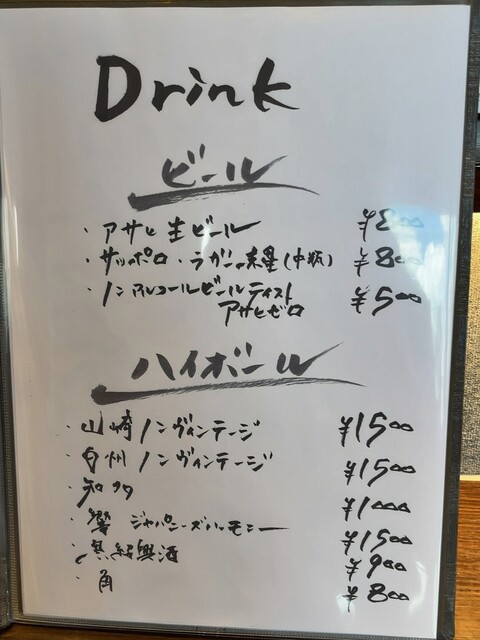 Drink
ビール
・アサヒ生ビール ¥800
・サッポロ・ラガー赤星(中瓶) ¥800
・ノンアルコールビールテイスト ¥500
アサヒゼロ
ハイボール
・山崎ノンヴィンテージ ¥1500
・白州ノンヴィンテージ ¥1500
・知多 ¥1000
・響 ジャパニーズハーモニー ¥1500
・黒紹興酒 ¥900
・角 ¥800